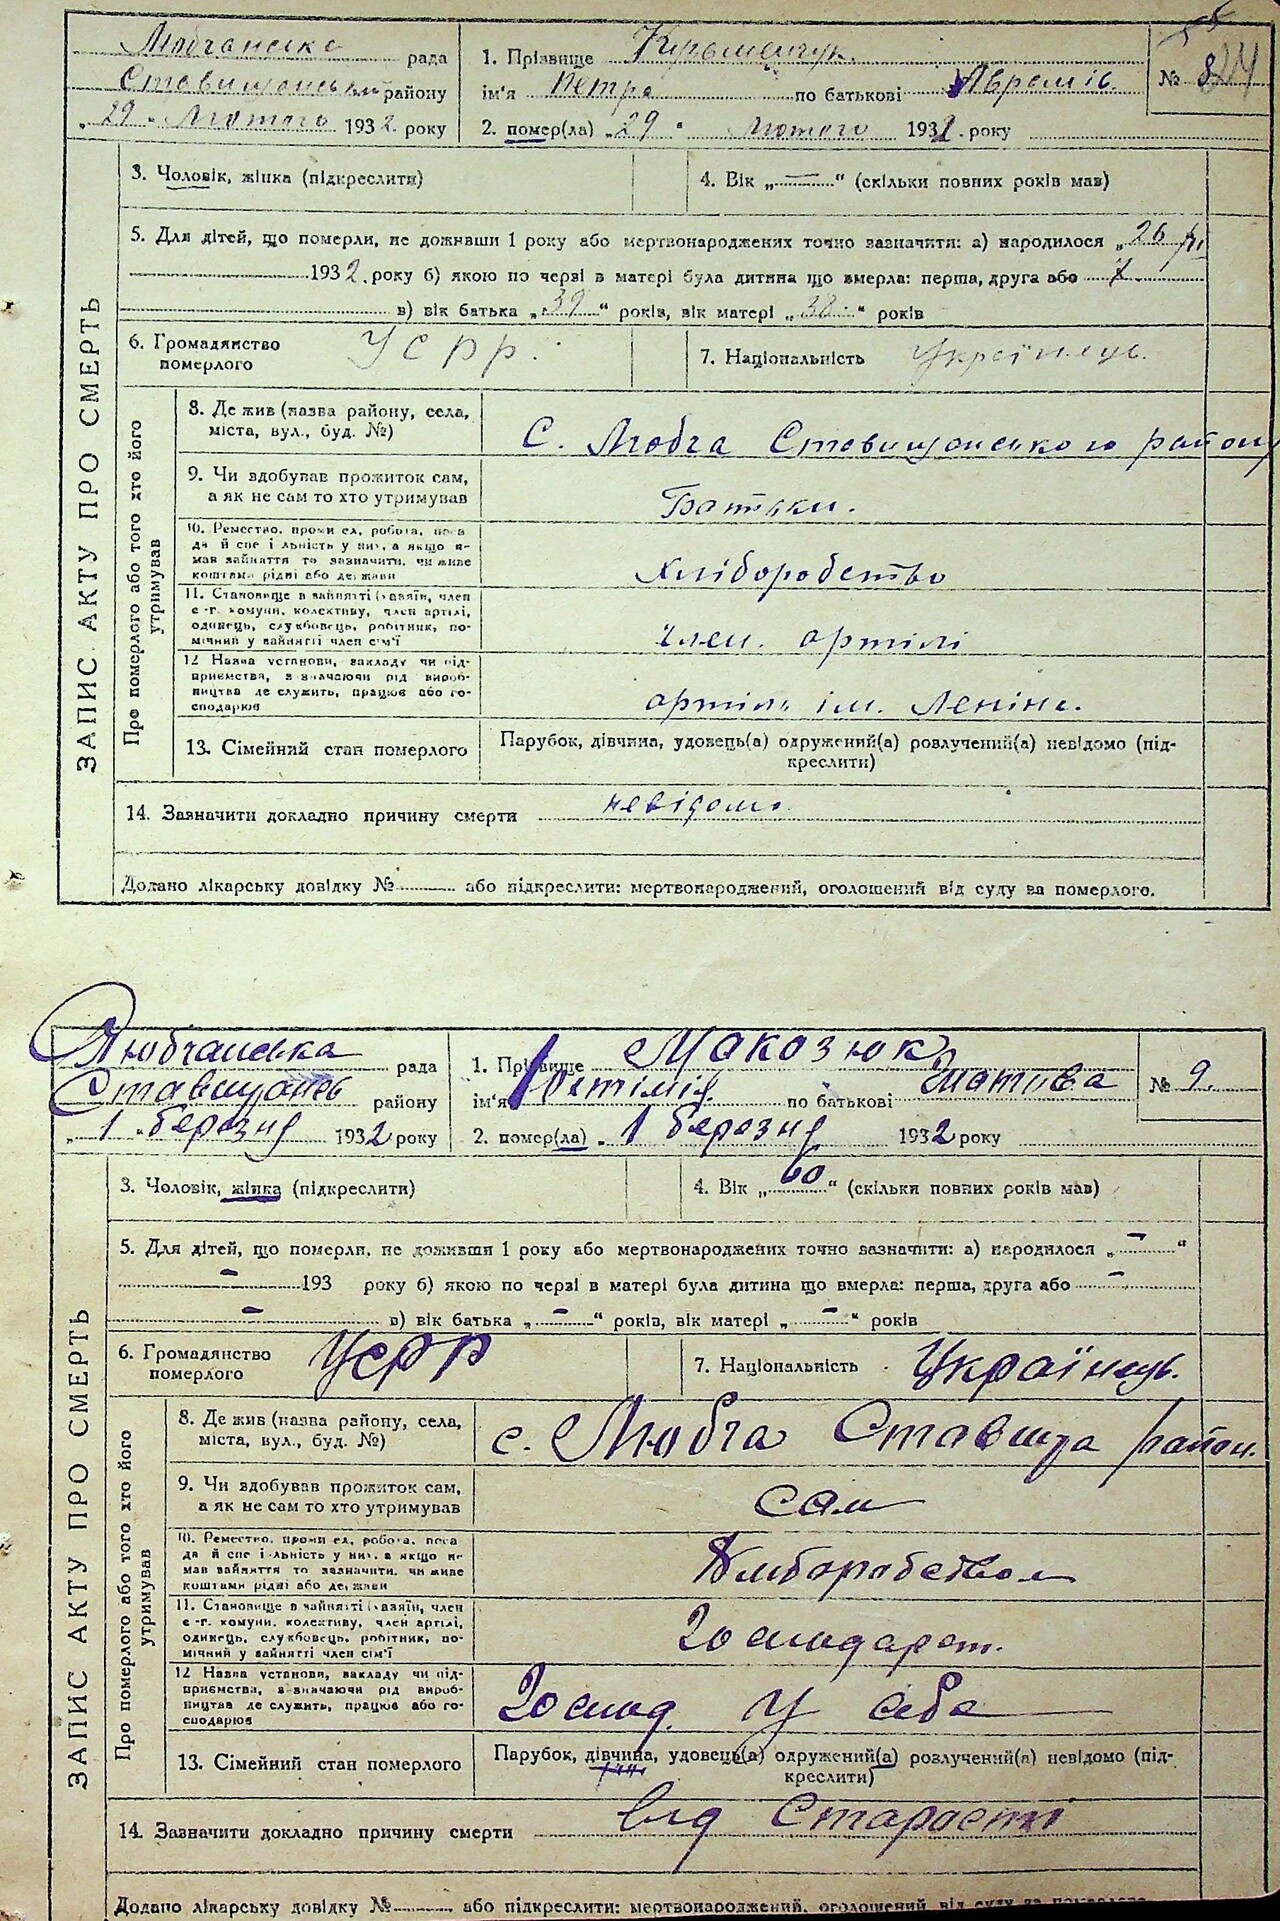 Любчанська рада
Ставищанський району
„29" Лютого 1932. року
1. Прізвище Кузьменчук.
ім'я Петро по батькові Аврамів.
2. помер(ла) „29" Лютого 1932. року
№ 8
3. Чоловік, жінка (підкреслити)
4. Вік „—" (скільки повних років мав)
5. Для дітей, що померли, не доживши 1 року або мертвонароджених точно зазначити: а) народилося „26
1932. року б) якою по черзі в матері була дитина що вмерла: перша, друга або 7
в) вік батька „39" років, вік матері „38" років
6. Громадянство
померлого
УСРР.
7. Національність Українець.
ЗАПИС АКТУ ПРО СМЕРТЬ
Про померлого або того хто його
утримував
8. Де жив (назва району, села,
міста, вул., буд. №)
С. Любча Ставищанського району
9. Чи здобував прожиток сам,
а як не сам то хто утримував
Батьки.
10. Ремество, промисел, робота, поса
да й спеціяльність у них, а якщо н-
мав зайняття то зазначити, чи живе
коштами рідні або держави
Хліборобство
11. Становище в зайнятті (хазяїн, член
с.-г. комуни, колективу, член артілі,
одинець, службовець, робітник, по-
мічний у зайнятті член сім'ї
член. артілі
12 Назва установи, закладу чи під-
приємства, зазначаючи рід вироб-
ництва де служить, працює або го-
сподарює
артіль ім. Леніна.
13. Сімейний стан померлого
Парубок, дівчина, удовець(а) одружений(а) розлучений(а) невідомо (під-
креслити)
14. Зазначити докладно причину смерти невідомо
Додано лікарську довідку № або підкреслити: мертвонароджений, оголошений від суду за померлого.
Любчанська рада
Ставищансь району
„1" березня 1932 року
1. Прізвище Макозюк
ім'я по батькові
2. помер(ла) „1 березня 1932 року
№ 9.
3. Чоловік, жінка (підкреслити)
4. Вік „60" (скільки повних років мав)
5. Для дітей, що померли, не доживши 1 року або мертвонароджених точно зазначити: а) народилося „—"
— 193 року б) якою по черзі в матері була дитина що вмерла: перша, друга або —
— в) вік батька „—" років, вік матері „—" років
6. Громадянство
померлого
УСРР
7. Національність Українець.
ЗАПИС АКТУ ПРО СМЕРТЬ
Про померлого або того хто його
утримував
8. Де жив (назва району, села,
міста, вул., буд. №)
с. Любча Ставища район.
9. Чи здобував прожиток сам,
а як не сам то хто утримував
сам
10. Ремество, промисел, робота, поса
да й спеціяльність у них, а якщо н-
мав зайняття то зазначити, чи живе
коштами рідні або держави
Хліборобством
11. Становище в зайнятті (хазяїн, член
с.-г. комуни, колективу, член артілі,
одинець, службовець, робітник, по-
мічний у зайнятті член сім'ї
Господарст.
12 Назва установи, закладу чи під-
приємства, зазначаючи рід вироб-
ництва де служить, працює або го-
сподарює
Господ. У себе
13. Сімейний стан померлого
Парубок, дівчина, удовець(а) одружений(а) розлучений(а) невідомо (під-
креслити)
14. Зазначити докладно причину смерти від Старости
Додано лікарську довідку № або підкреслити: мертвонароджений, оголошений від суду за померлого